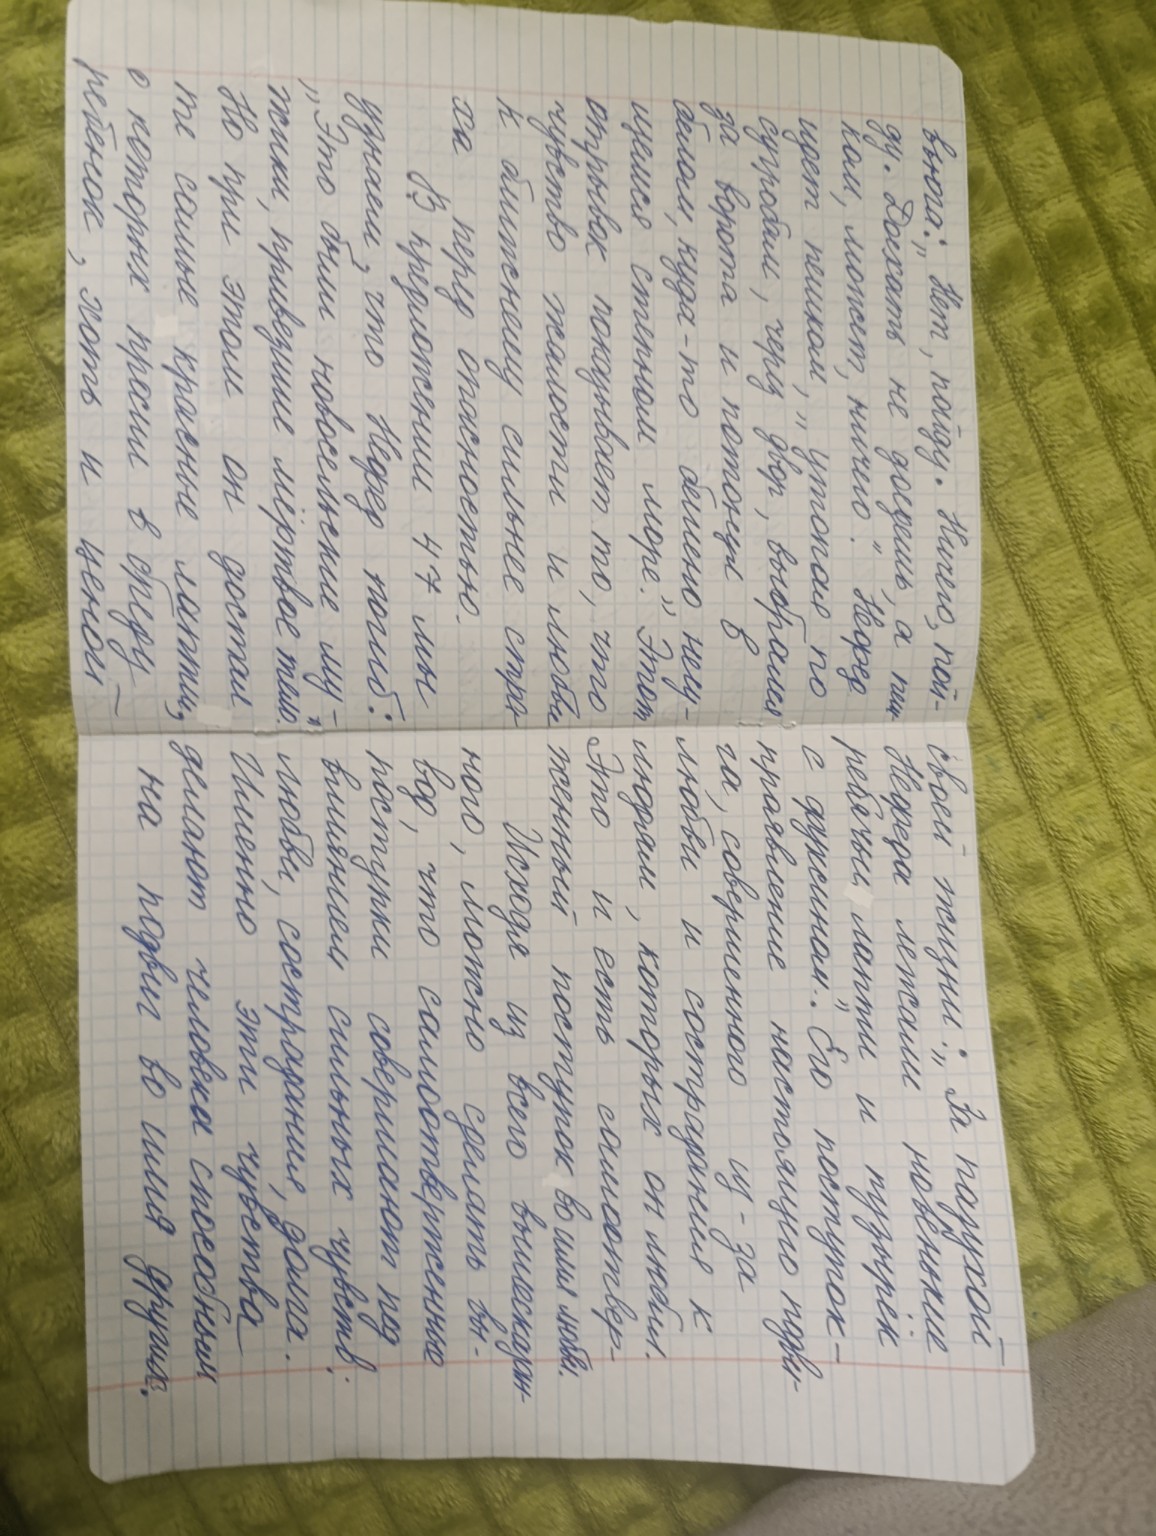 вьюга: „Нет, пойду. Ничего, пой-
ду. Доехать не доедешь, а пеш-
ком, может, ничего." Нефед
идет пешком, „утопая по
сугробам, через двор, выбрался
за ворота и потонул в
белом, куда-то бешено несу-
щемся степном море." Этот
отрывок показывает то, что
чувство жалости и любви
к ближнему сильнее стра-
ха перед опасностью.
В предложении 47 мы
узнаем, что Нефед погиб:
„Это были новосельские му-
жики, приведшие мёртвое тело."
Но при этом он достал
те самые красные лапти,
о которых просил в бреду
ребенок, хоть и ценой
своей жизни: „За пазухой
Нефеда лежали новенькие
ребячьи лапти и пузырек
с фуксином." Его поступок –
проявление настоящего подви-
га, совершенного из-за
любви и сострадания к
людям, которых он любил.
Это и есть самоотвер-
женный поступок во имя любви.
Исходя из всего вышесказан-
ного, можно сделать вы-
вод, что самоотверженные
поступки совершают под
влиянием сильных чувств:
любви, сострадания, долга.
Именно эти чувства
делают человека способным
на подвиг во имя других.